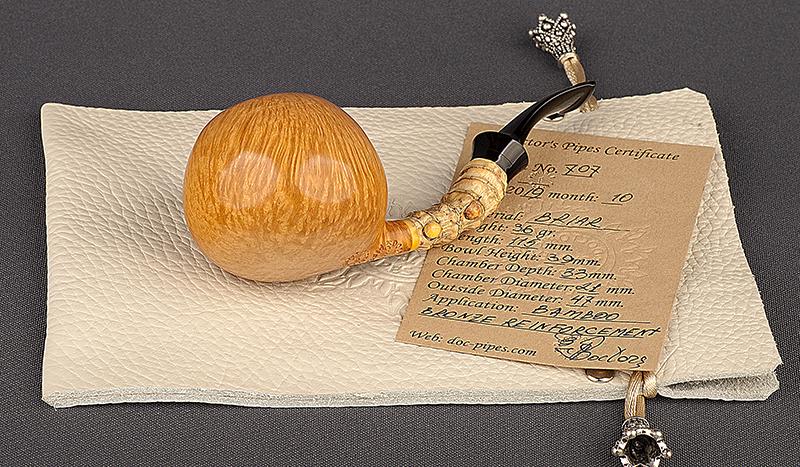 ctor's Pipes Certificate
No. 707
2019 month: 10
rial: BRIAR
ght: 36 gr.
ength: 111 mm.
Bowl Height: 39 mm.
Chamber Depth: 33 mm.
Chamber Diameter: 21 mm.
Outside Diameter: 47 mm.
Application: BAMBOO
BRONZE REINFORCEMENT
Web: doc-pipes.com
Doctors